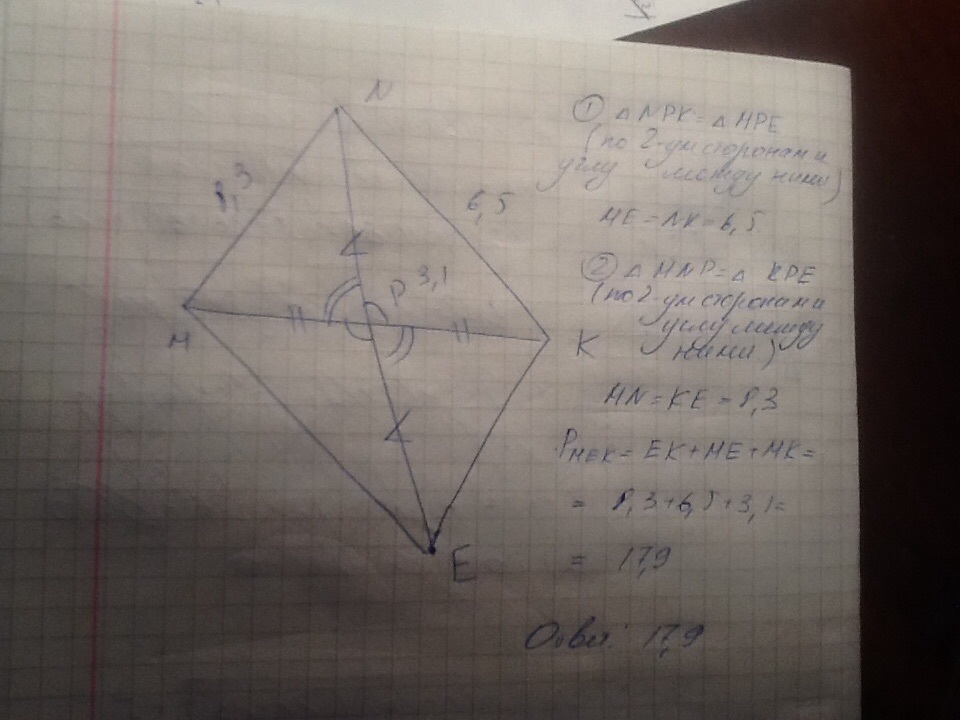 N
8,3
6,5
P 3,1
M
K
E
① △ NPK = △ MPE
(по 2-ум сторонам и
углу между ними)
ME = NK = 6,5
② △ MNP = △ KPE
(по 2-ум сторонам и
углу между
ними)
MN = KE = 8,3
P MEK = EK + ME + MK =
= 8,3 + 6,5 + 3,1 =
= 17,9
Ответ: 17,9